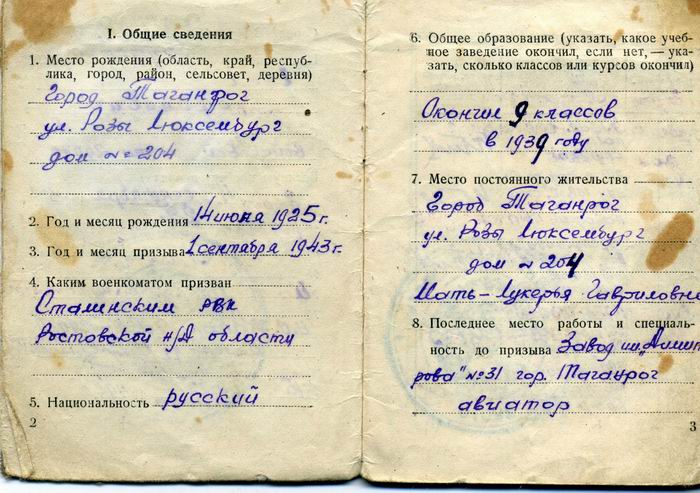 I. Общие сведения
1. Место рождения (область, край, респуб-
лика, город, район, сельсовет, деревня)
Город Таганрог
ул. Розы Люксембург
дом № 204
2. Год и месяц рождения 14 июня 1925 г.
3. Год и месяц призыва 1 сентября 1943 г.
4. Каким военкоматом призван
Сталинским РВК
Ростовской н/Д области
5. Национальность русский
2
6. Общее образование (указать, какое учеб-
ное заведение окончил, если нет, — ука-
зать, сколько классов или курсов окончил)
Окончил 9 классов
в 1939 году
7. Место постоянного жительства
Город Таганрог
ул. Розы Люксембург
дом № 204
Мать - Лукерья Гавриловна
8. Последнее место работы и специаль-
ность до призыва Завод им.
№ 31 гор. Таганрог
авиатор
3